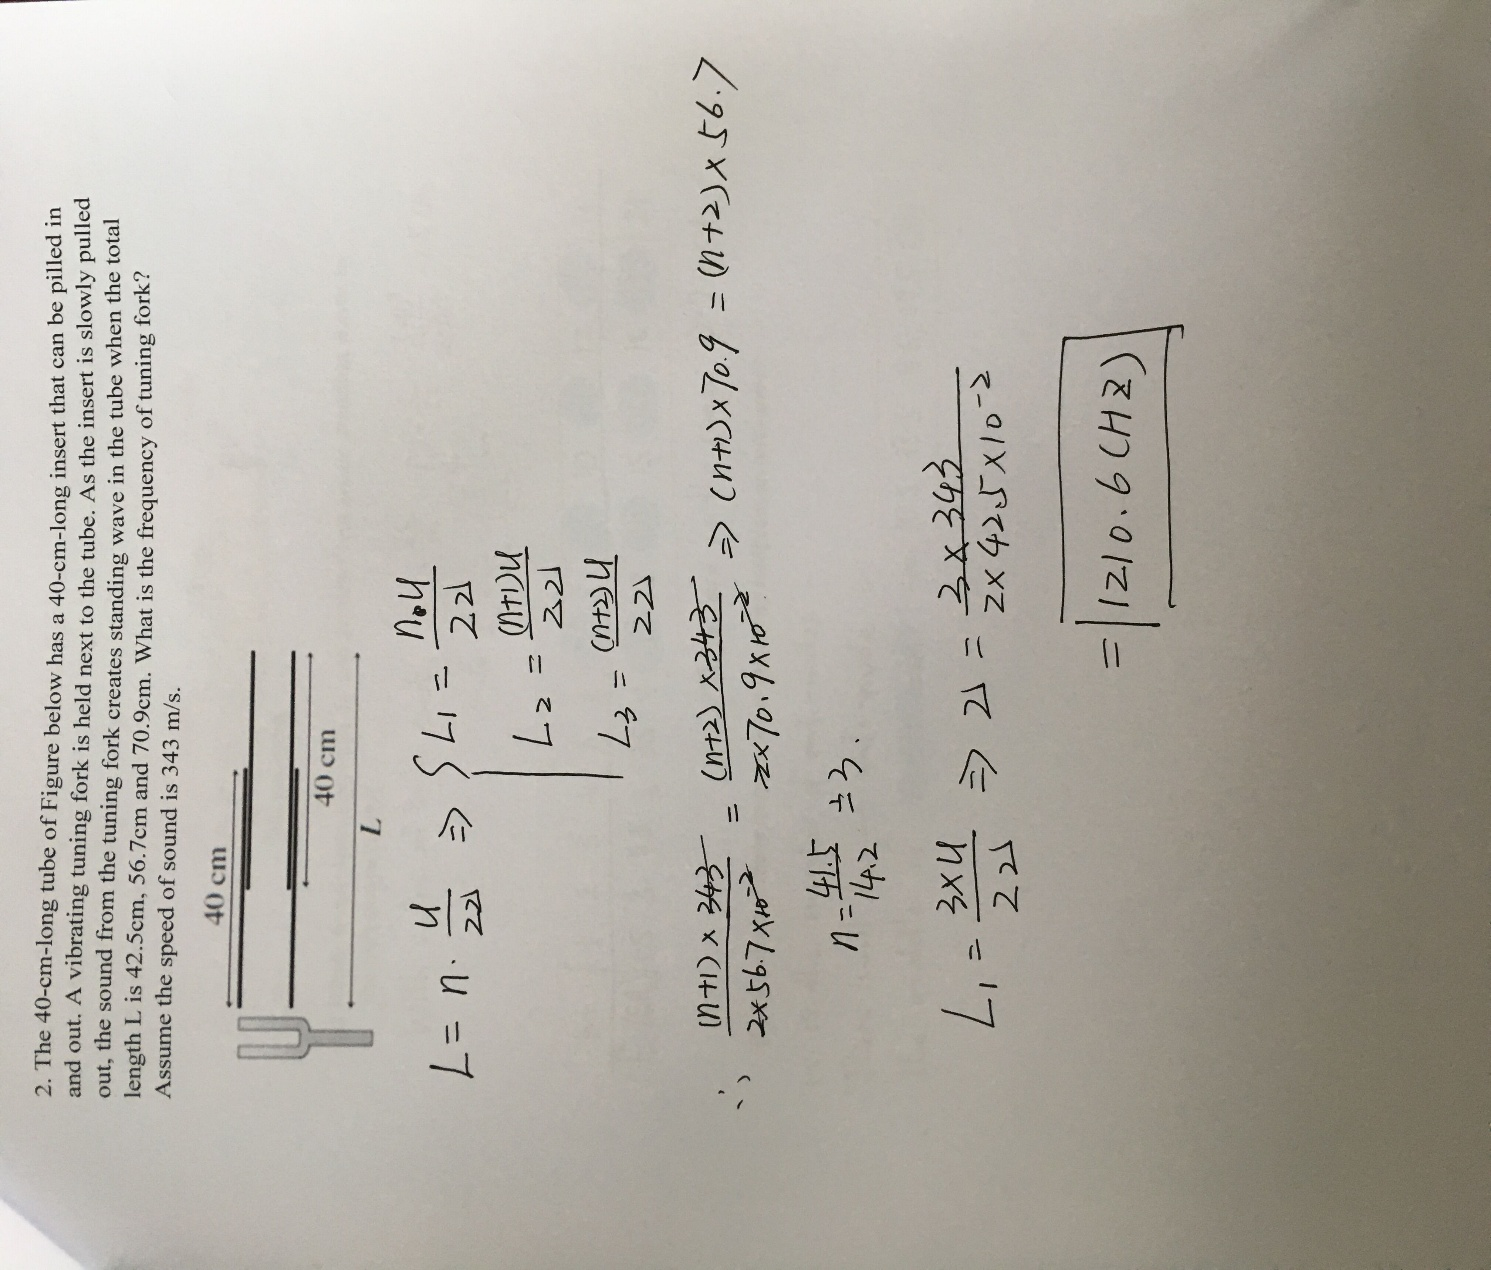 2. The 40-cm-long tube of Figure below has a 40-cm-long insert that can be pilled in
and out. A vibrating tuning fork is held next to the tube. As the insert is slowly pulled
out, the sound from the tuning fork creates standing wave in the tube when the total
length L is 42.5cm, 56.7cm and 70.9cm. What is the frequency of tuning fork?
Assume the speed of sound is 343 m/s.
40 cm
40 cm
L
L = n · u/2ν ⇒ { L1 = n·u/2ν
L2 = (n+1)u/2ν
L3 = (n+2)u/2ν
∴ (n+1)×343/2×56.7×10⁻² = (n+2)×343/2×70.9×10⁻² ⇒ (n+1)×70.9 = (n+2)×56.7
n = 41.5/14.2 ≐ 3.
L1 = 3×u/2ν ⇒ ν = 3×343/2×42.5×10⁻²
= 1210.6 (HZ)